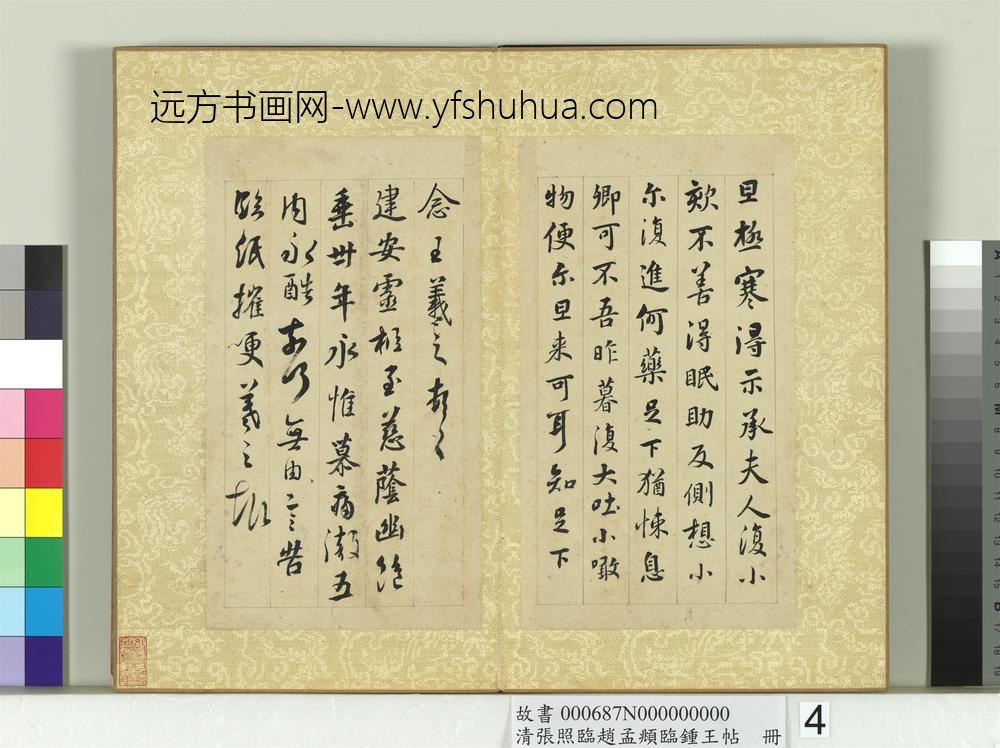 远方书画网-www.yfshuhua.com
旦極寒得示承夫人復小
欬不善得眠助反側想小
尔復進何藥足下猶悚息
卿可不吾昨暮復大吐小噉
物便尔旦来可耳知足下
念王羲之頓首
建安靈柩至慈蔭幽絶
垂卅年永惟慕痛徹五
内永酷奈何無由言告
臨紙摧哽羲之報
故書 000687N000000000
清張照臨趙孟頫臨鍾王帖 冊
4